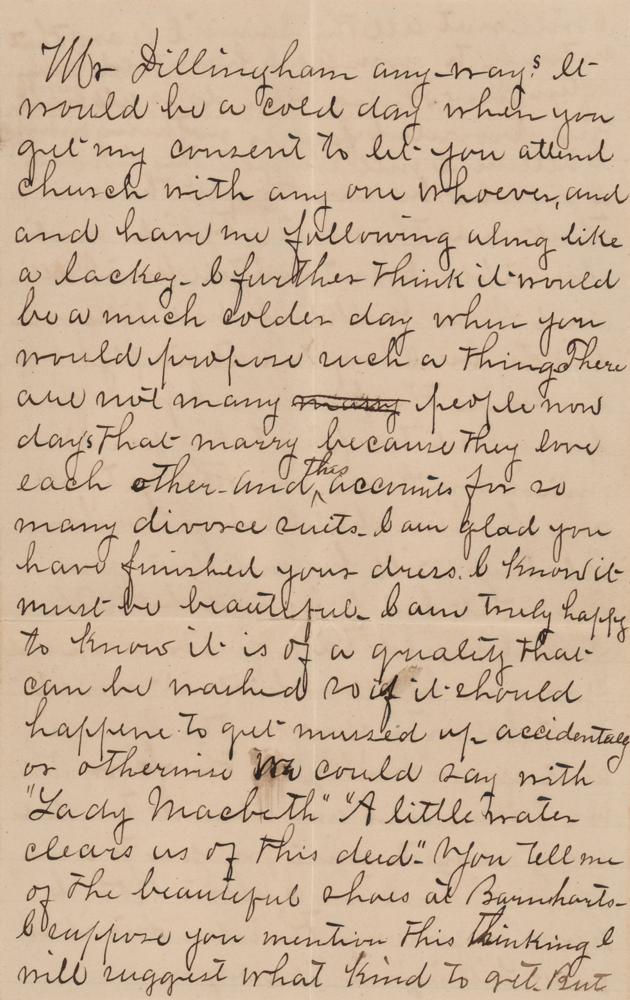 Mr Dillingham any-ways It
would be a cold day when you
get my consent to let you attend
church with any one whoever, and
and have me following along like
a lackey- I further think it would
be a much colder day when you
would propose such a thing There
are not many many people now
days that marry because they love
each other- and this accounts for so
many divorce suits- I am glad you
have finished your dress. I know it
must be beautiful- I am truly happy
to know it is of a quality that
can be washed so if it should
happene to get mussed up accidentaly
or otherwise we could say with
"Lady Macbeth" "A little water
clears us of this deed-" You tell me
of the beautiful shoes at Barnharts-
I suppose you mention this thinking I
will suggest what kind to get. But